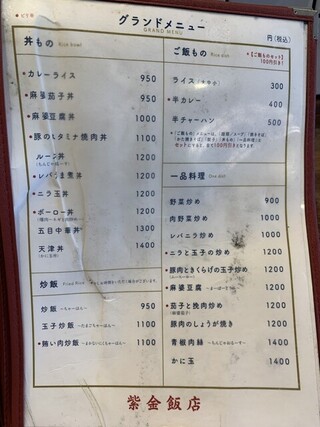 グランドメニュー
GRAND MENU
円(税込)
丼もの Rice bowl
カレーライス 950
麻婆茄子丼 950
麻婆豆腐丼 1000
豚のスタミナ焼肉丼 1100
ルージ丼 1200
レバうま煮丼 1200
ニラ玉丼 1200
ポーロー丼 1200
五目中華丼 1300
天津丼 1400
(かに玉丼)
炒飯 Fried Rice
炒飯 950
玉子炒飯 1100
賄い肉炒飯 1100
ご飯もの Rice dish
【ご飯ものセット】
100円引き!
ライス 300
半カレー 400
半チャーハン 500
一品料理
野菜炒め 900
肉野菜炒め 1000
レバニラ炒め 1200
ニラと玉子の炒め 1200
豚肉ときくらげの玉子炒め 1200
麻婆豆腐 1200
茄子と挽肉炒め 1200
(麻婆茄子)
豚肉のしょうが焼き 1200
青椒肉絲 1400
かに玉 1400
紫金飯店